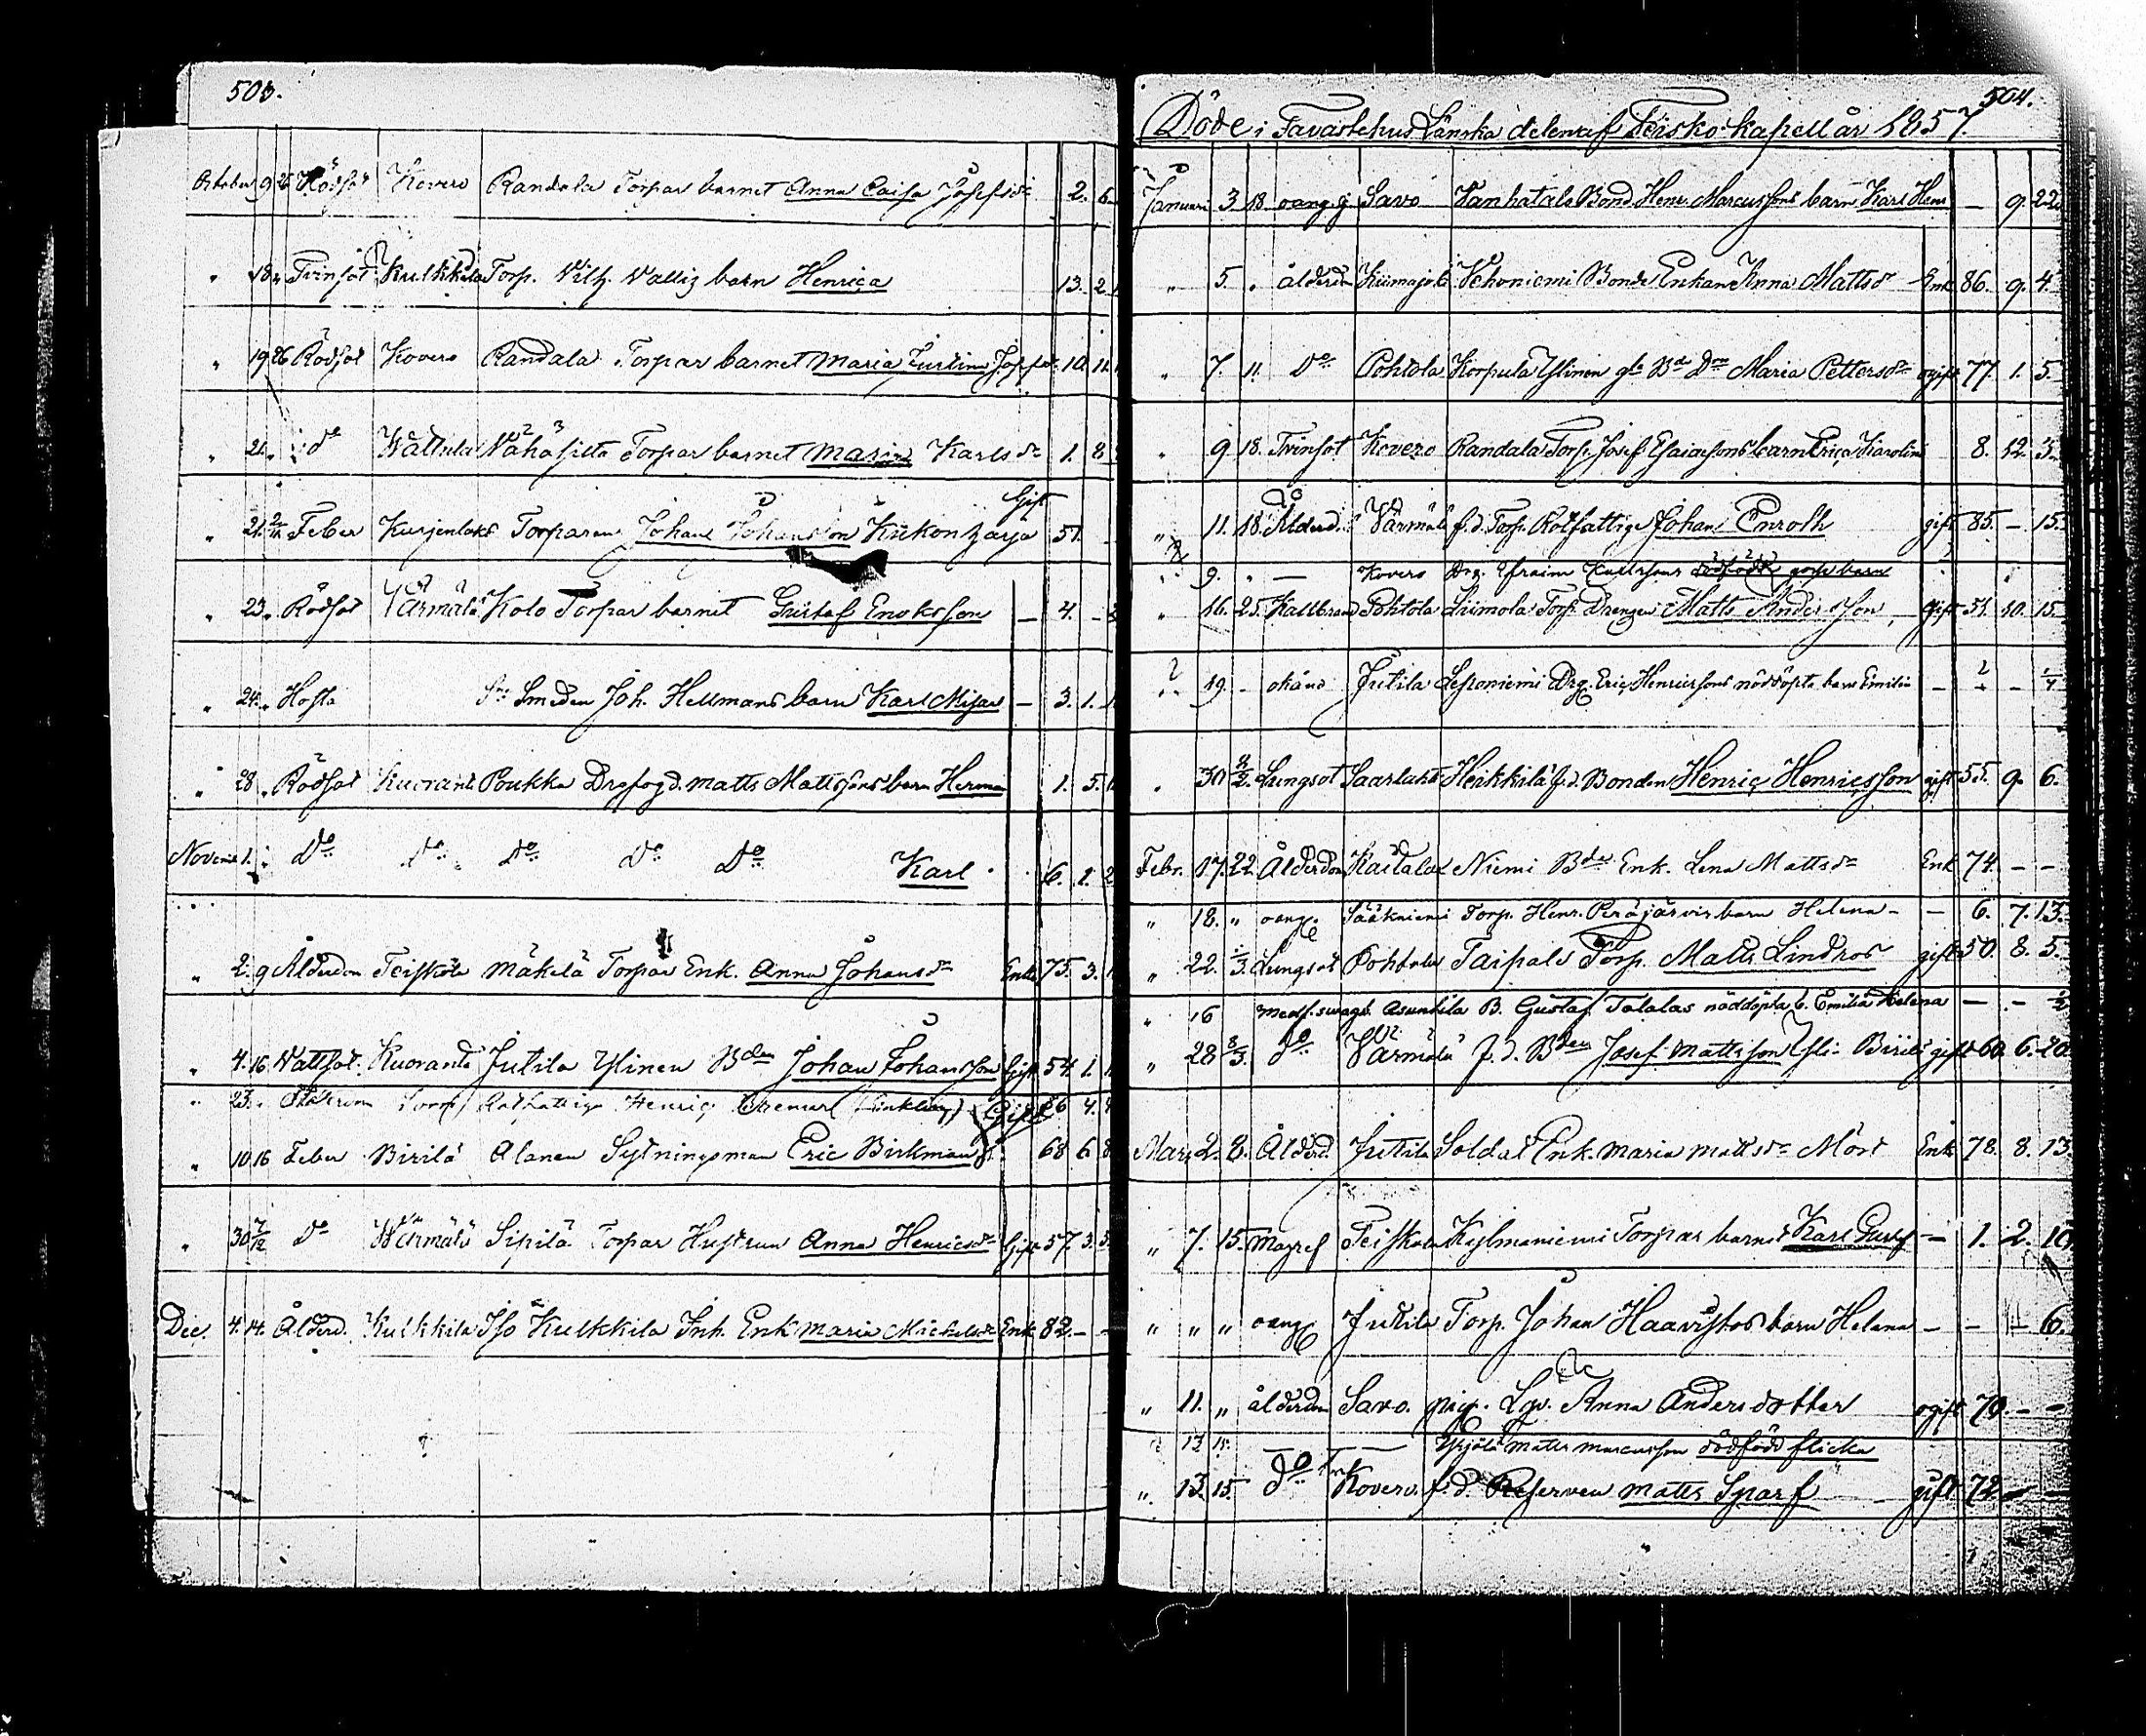 503.
October 9 26 Rödsot Kovero Randala Torpar barnet Anna Caisa Josefsdr 2. 6.
" 18 " Tvinsot Kulkkila Torp. Vilh. Wallig barn Henrica 13. 2.
" 19 26 Rödsot Kovero Randala Torpar barnet Maria Justina Josefsd. 10. 11.
" 21. " do Wattula Vähäsilta Torpar barnet Maria Karlsdr 1. 8.
" 21. 2/11 Feber Kurjenlaks Torparen Johan Johansson Gift 51.
" 23. " Rödsot Värmälä Kolo Torpar barnet Gustaf Enoksson — 4. -
" 24. " Hosta Smeden Joh. Hellmans barn Karl — 3. 1.
" 28. " Rödsot Kuoranta Poukka Matts Mattssons barn Herman 1. 5.
Novemb 1. " Do Do Do Do Do Karl 6. 1. 2
" 2. 9 Ålderdom Teiskola Mäkelä Torpar Enk. Anna Johansdr Enka 75. 3.
" 4. 16 Wattsot. Kuoranta Jutila Ylinen Bden Johan Johansson Gift 54 1.
" 23. " Henric Gift 66 4.
" 10 16 Feber Birilä Alanen Sytningsman Eric Birkman 68 6 8
" 30 7/12 Do Wärmälä Sipilä Torpar Hustrun Anna Henricsdr Gift 57. 3. 3
Dec. 4. 14. Ålderd. Kulkkila Iso Kulkkila Inh. Enk Maria Michelsdr Enk 82. - -
504.
Döde i Tavastehus Länska delen af Teisko Kapell år 1857.
Januari 3. 18. oang. Savo Vanhatalo Bond. Henr. Marcussons barn Karl Henr — 9. 22
" 5. " ålderdm Kiimajoki Vehoniemi Bonde Enkan Anna Mattsdr Enk 86. 9. 4.
" 7. 11. Do Pohtola Korpula Ylinen gla Bd Maria Pettersdr ogift 77. 1. 5.
" 9 18. Tvinsot Kovero Randala Torp. Josef Esaiassons barn Erica Karolina 8. 12. 3.
" 11. 18. Ålderd. Värmälä f.d. Torp. Rotfattige Johan Enroth gift 85. — 15.
" 9. " — Kovero Drg. Efraim Karlssons dödfödt gosse barn
" 16. 25. Kallbrand Pohtola Liimola Torp. Drengen Matts Andersson, gift 51. 10. 15.
" 19. - okänd Jutila Leponiemi Drg. Eric Henricssons nöddöpta barn Emilia — - — 1/4
" 30 8/2. Lungsot Saarlaks Heikkilä f.d. Bonden Henric Henricsson gift 55. 9. 6.
Febr. 17. 22. Ålderdom Kaitala Niemi Bde Enk. Lena Mattsdr Enk 74. — —
" 18. " oang. Sääksniemi Torp. Henr. Peräjärvis barn Helena — — 6. 7. 13.
" 22. 1/3. Lungsot Pohtola Taipale Torp. Matts Lindros gift 50. 8. 5.
" 16 medf. svagh. Asuntila B. Gustaf Talalas nöddöpta b. Emilia Helena — . - 1/2
" 28 8/3. do Värmälä f.d. Bden Josef Mattsson Yli Birilä gift 60. 6. 20.
Mars 2. 8. Ålderd Jutila Soldat Enk. Maria Mattsdr Mört Enk 78. 8. 13.
" 7. 15. Magref Teiskola Kylmäniemi Torpar barnet Karl Gustaf — 1. 2. 10
" " " oang. Jutila Torp. Johan Haavistos barn Helena — — — 6.
" 11. " ålderdm Savo. pig. Anna Andersdotter ogift 70. — —
" 13 15. — — Yrjölä Matts Marcusson dödfödd flicka
" 13. 15. do Kovero. f.d. Reserven Matts Sparf gift 72 — —